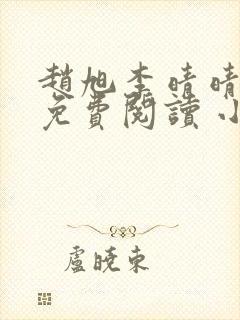 趙旭李晴晴
免費閱讀小
盧曉東